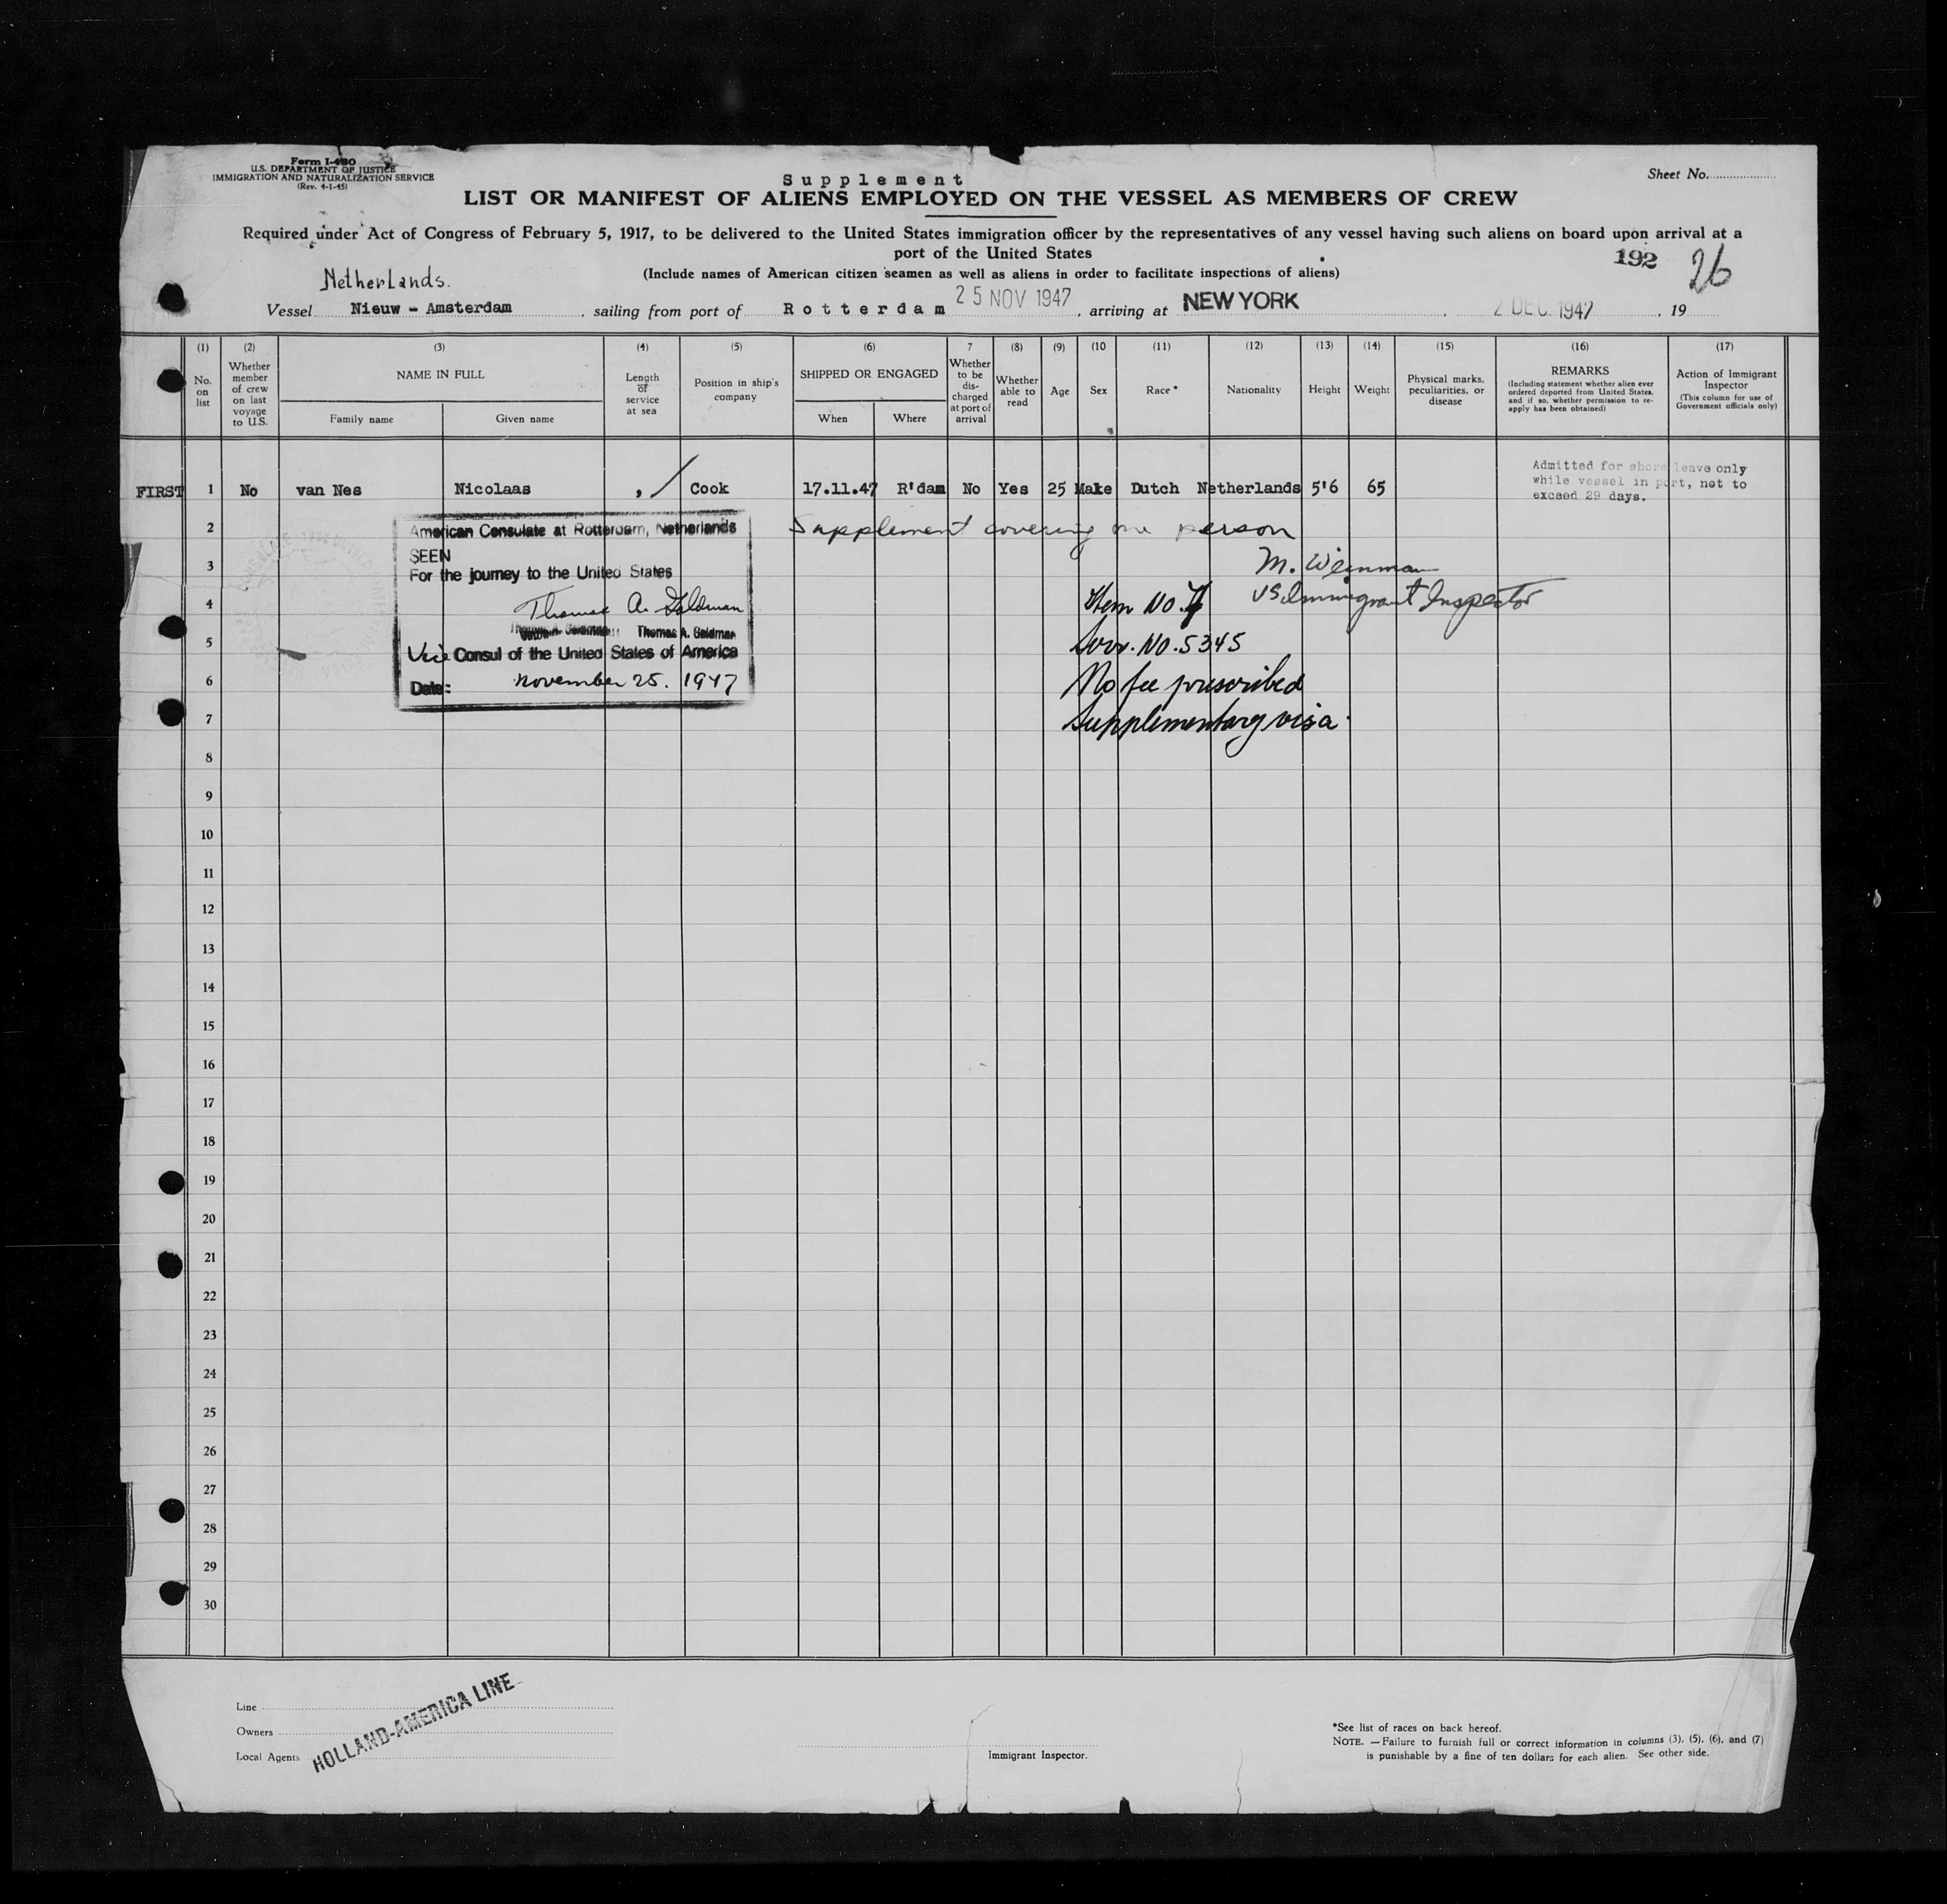 Form I-480
U.S. DEPARTMENT OF JUSTICE
IMMIGRATION AND NATURALIZATION SERVICE
(Rev. 4-1-45)
Supplement
Sheet No.
LIST OR MANIFEST OF ALIENS EMPLOYED ON THE VESSEL AS MEMBERS OF CREW
Required under Act of Congress of February 5, 1917, to be delivered to the United States immigration officer by the representatives of any vessel having such aliens on board upon arrival at a
port of the United States
(Include names of American citizen seamen as well as aliens in order to facilitate inspections of aliens)
192 26
Netherlands.
Vessel Nieuw - Amsterdam, sailing from port of Rotterdam 25 NOV 1947, arriving at NEW YORK, 2 DEC 1947, 19
(1) (2) (3) (4) (5) (6) 7 (8) (9) (10 (11) (12) (13) (14) (15) (16) (17)
No. on list
Whether member of crew on last voyage to U.S.
NAME IN FULL
Family name
Given name
Length of service at sea
Position in ship's company
SHIPPED OR ENGAGED
When
Where
Whether to be discharged at port of arrival
Whether able to read
Age
Sex
Race *
Nationality
Height
Weight
Physical marks, peculiarities, or disease
REMARKS
(Including statement whether alien ever ordered deported from United States, and if so, whether permission to reapply has been obtained)
Action of Immigrant Inspector
(This column for use of Government officials only)
FIRST 1 No van Nes Nicolaas , / Cook 17.11.47 R'dam No Yes 25 Male Dutch Netherlands 5'6 65
Admitted for shore leave only
while vessel in port, not to
exceed 29 days.
2 Supplement covering one person
American Consulate at Rotterdam, Netherlands
SEEN
For the journey to the United States
Thomas A. Goldman
Thomas A. Goldman
Vice Consul of the United States of America
Date: November 25. 1947
3 M. Weinman
US Immigrant Inspector
4 Item No. 7
5 Serv. No. 5345
6 No fee prescribed
7 Supplementary visa.
8
9
10
11
12
13
14
15
16
17
18
19
20
21
22
23
24
25
26
27
28
29
30
Line
Owners
Local Agents
HOLLAND-AMERICA LINE
Immigrant Inspector.
*See list of races on back hereof.
NOTE. — Failure to furnish full or correct information in columns (3), (5), (6), and (7)
is punishable by a fine of ten dollars for each alien. See other side.